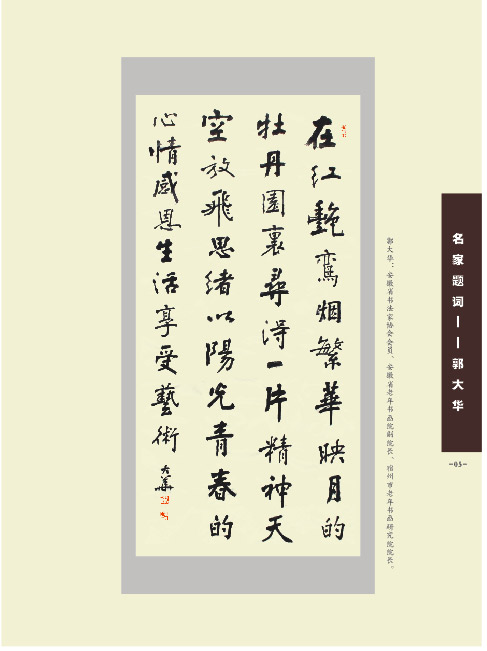 在红艷鸾烟繁華映月的
牡丹園裏尋得一片精神天
空放飛思绪以陽光青春的
心情感恩生活享受藝術
大華
郭大华：安徽省书法家协会会员、安徽省老年书画院副院长、宿州市老年书画研究院院长。
名家题词——郭大华
-03-